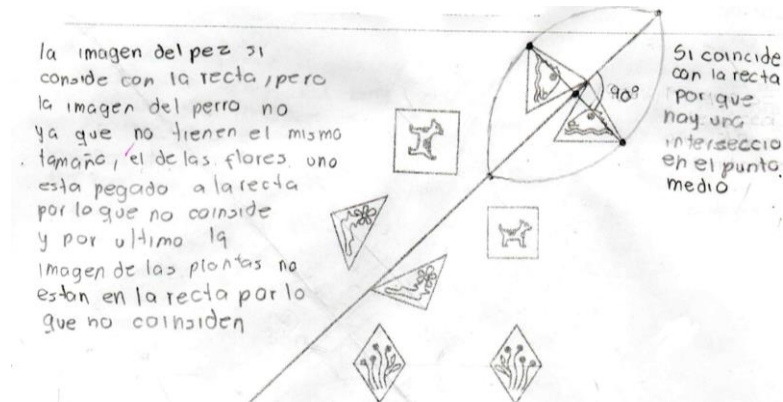 la imagen del pez si
conside con la recta, pero
la imagen del perro no
ya que no tienen el mismo
tamaño, el de las flores uno
esta pegado a la recta
por lo que no coinside
y por ultimo la
imagen de las plantas no
estan en la recta por lo
que no coinsiden
90°
Si coincide
con la recta
por que
hay una
intersecció
en el punto
medio